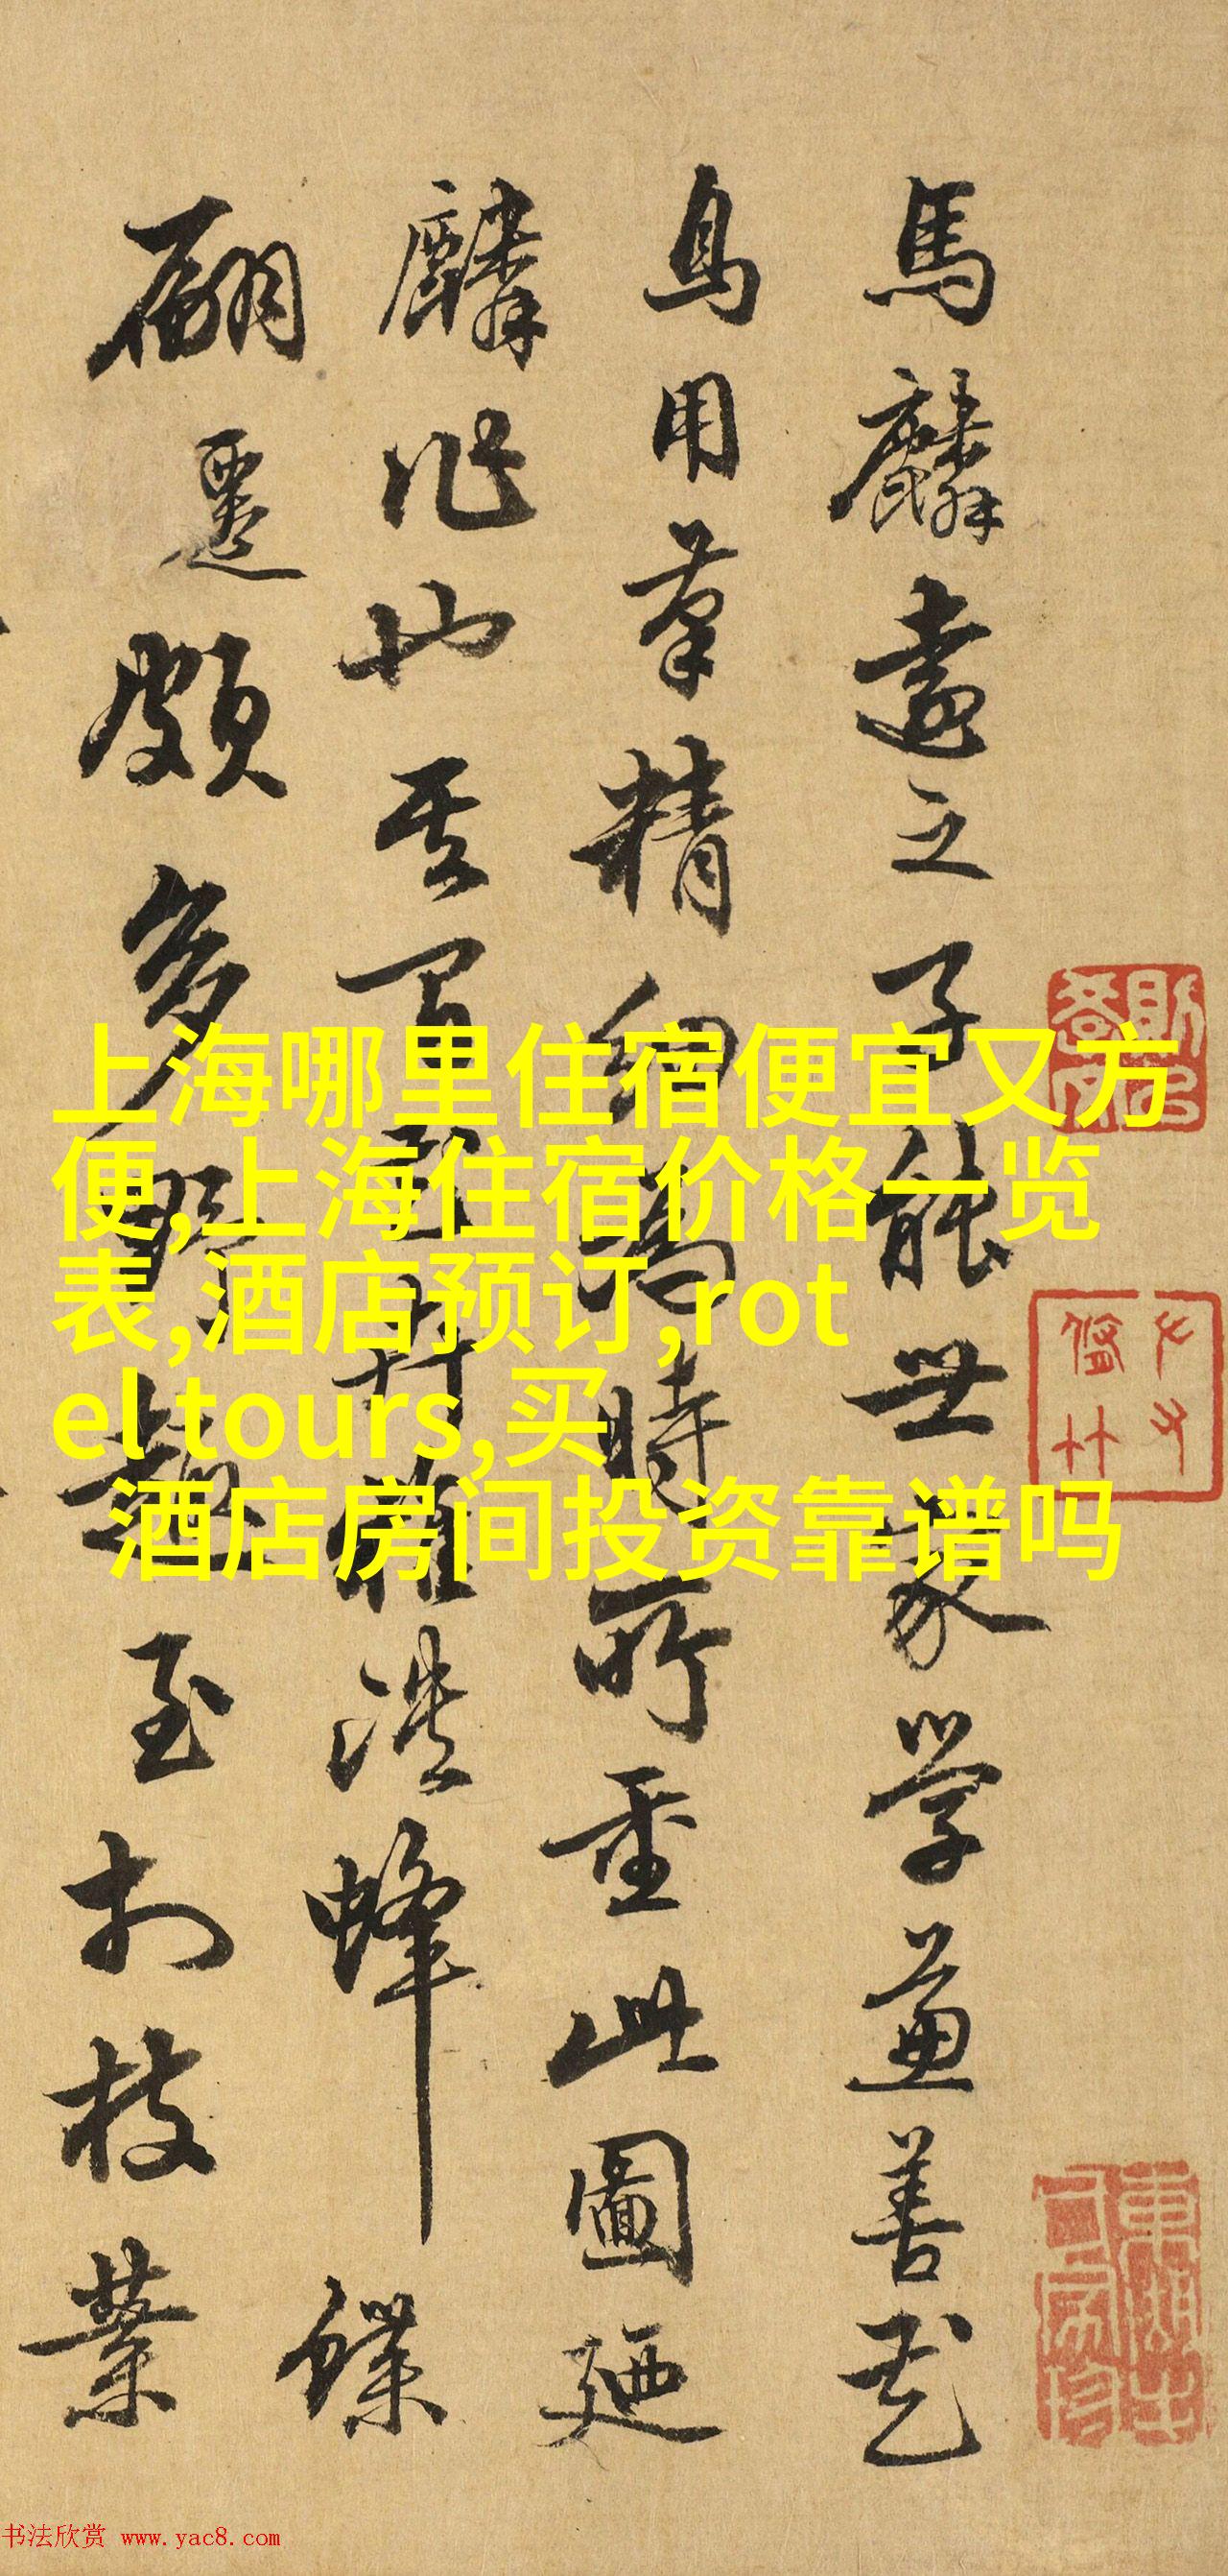 馬麟遠之子能世家學兼善花
鳥用筆精細為時所重此圖廼
麟作也其間卉雜蜂蝶
翩躚頗多野趣至於枝葉
上海哪里住宿便宜又方
便,上海住宿价格一览
表,酒店预订,rot
el tours,买
酒店房间投资靠谱吗
书法欣赏 www.yac8.com